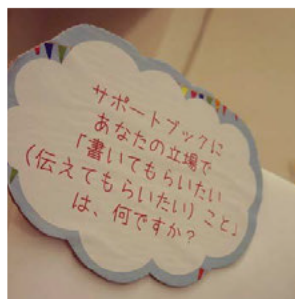 サポートブックに
あなたの立場で
「書いてもらいたい
(伝えてもらいたい)こと」
は、何ですか?